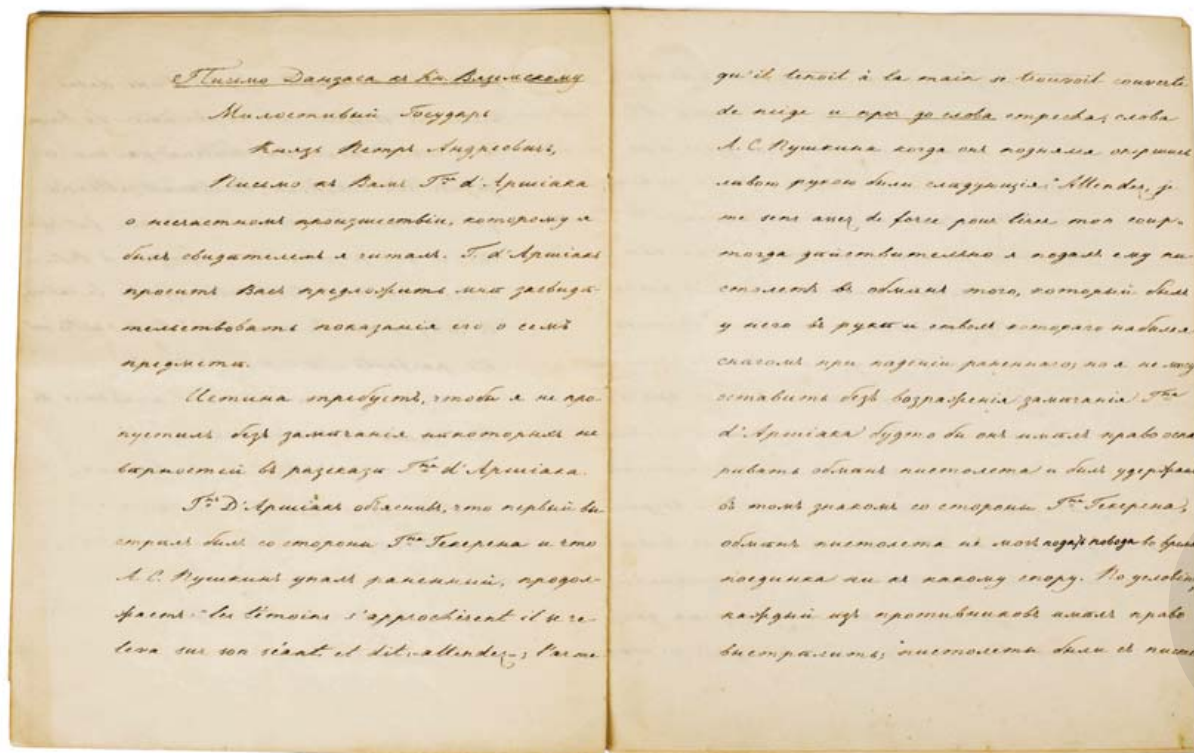 Письмо Данзаса къ Кн. Вяземскому
Милостивый Государь
Князь Петръ Андреевичъ,
Письмо къ Вамъ Г<sup>на</sup> д'Аршіака
о несчастномъ происшествіи, которому я
былъ свидѣтелемъ я читалъ. Г. д'Аршіакъ
проситъ Васъ предложить мнѣ засвидѣ-
тельствовать показанія его о семъ
предметѣ.
Истина требуетъ, чтобы я не про-
пустилъ безъ замѣчанія нѣкоторыхъ не
вѣрностей въ разсказѣ Г<sup>на</sup> д'Аршіака.
Г<sup>нъ</sup> Д'Аршіакъ объяснивъ, что первый вы-
стрѣлъ былъ со стороны Г<sup>на</sup> Гекерена и что
А. С. Пушкинъ упалъ раненный, продол-
жаетъ: "les témoins s'approchèrent il se re-
leva sur son séant et dit: attendez; l'arme
qu'il tenoit à la main se trouvoit couverte
de neige и проч до слова
А. С. Пушкина когда онъ поднялся опершись
лѣвою рукою были слѣдующія: "Attendez, je
me sens assez de force pour tirer mon coup"
тогда дѣйствительно я подалъ ему пи-
столетъ въ обмѣнъ того, который былъ
у него въ рукѣ и стволъ котораго набился
снѣгомъ при паденіи раненнаго; но я не могу
оставить безъ возраженія замѣчанія Г<sup>на</sup>
д'Аршіака будто бы онъ имѣлъ право оспа
ривать обмѣнъ пистолета и былъ удержанъ
въ томъ знакомъ со стороны Г<sup>на</sup> Гекерена,
обмѣнъ пистолета не могъ подать повода во время
поединка ни къ какому спору. По условію
каждый изъ противниковъ имѣлъ право
выстрѣлить; пистолеты были съ писто